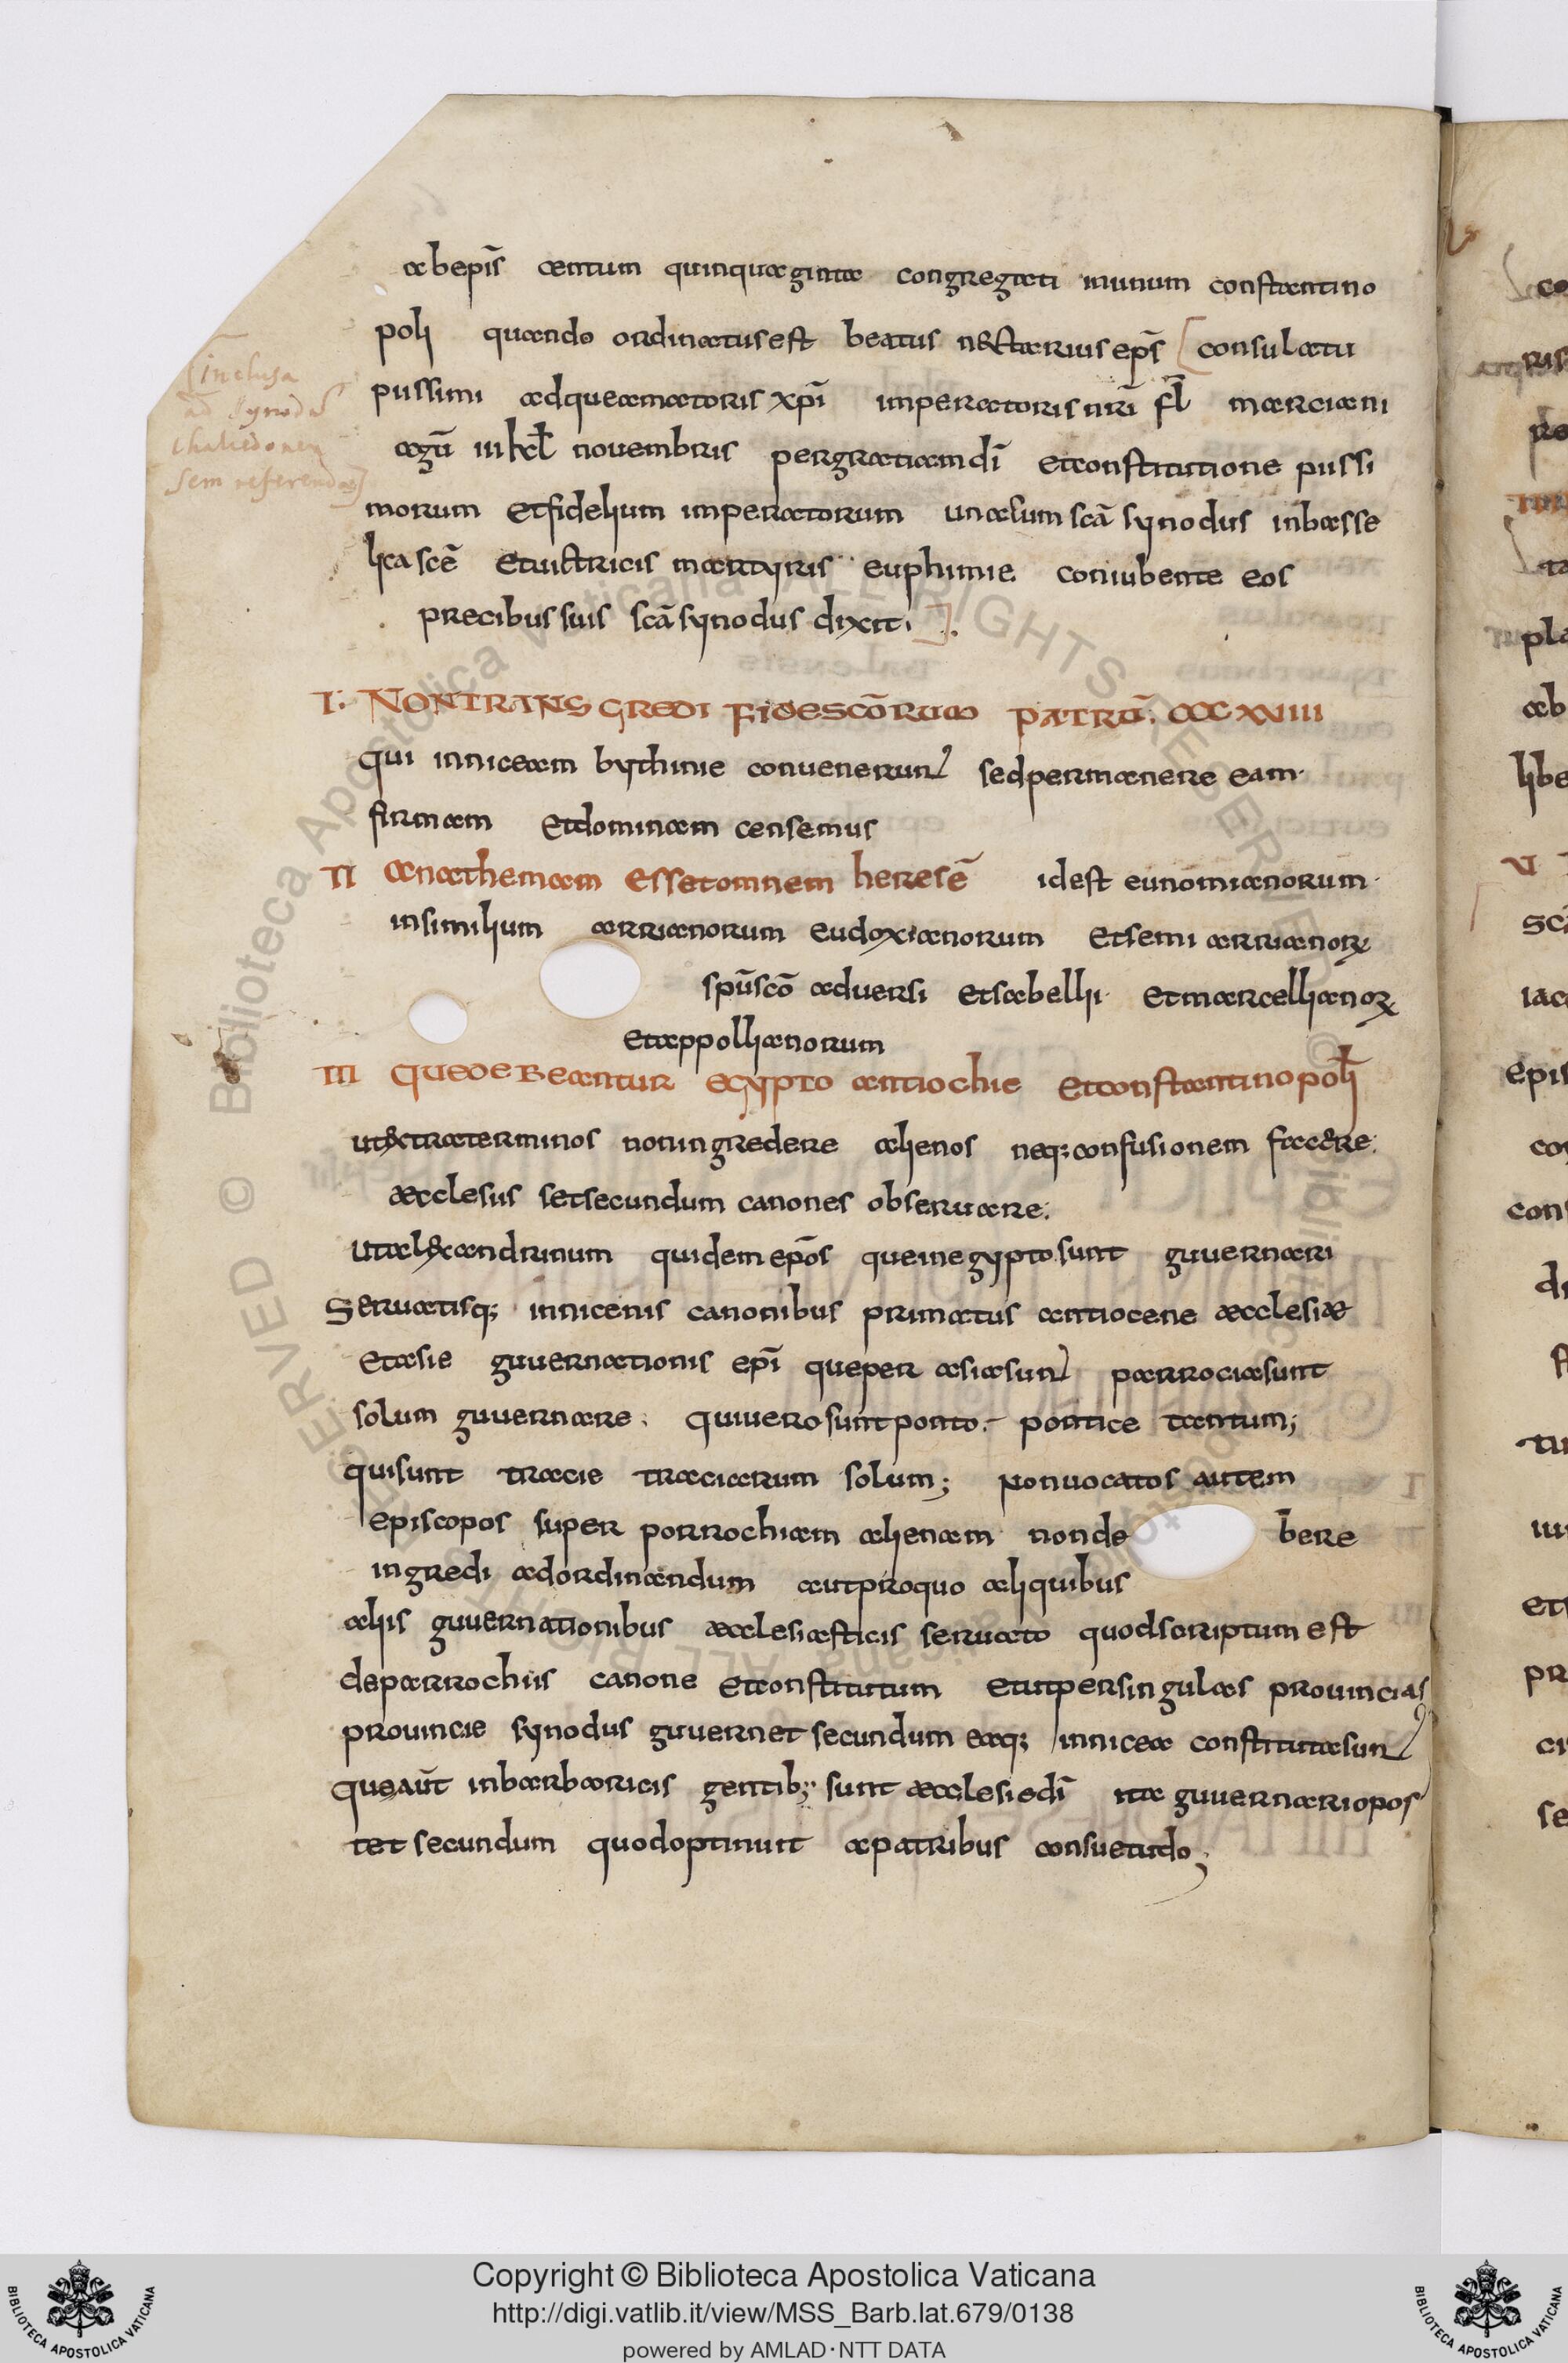 ab epīs centum quinquaginta congregati inunum constantino
poli quando ordinatus est beatus nectarius epīs [consulatu
piissimi adque amatoris xpī imperatoris nrī fl̄ marciani
agū iii kl̄ novembris per gratiam dī et constitutione piissi
morum et fidelium imperatorum una sum scā synodus in basse
lica scē et uictricis martyris euphimie coniubente eos
precibus suis scā synodus dixit. ]
I: NON TRANSGREDI FIDE SCŌRUM PATRŪ. CCCXVIII
qui in niceam bythinie convenerunt sed permanere eam.
firmam et dominam censemus
II anathemam esset omnem heresē id est eunomianorum.
insimilium arrianorum eudoxianorum et semi arrianorꝝ
spū scō aduersi et sabellii et marcellianorꝝ
et appollianorum
III QUE DEBEANTUR EGYPTO antiochie et constantinopol̄i
ut extra terminos non ingredere alienos neq; confusionem faccere.
æcclesiis set secundum canones observare.
ut alexandrinum quidem epōs que in egypto sunt guvernari
Servatisq; in nicenis canonibus primatus antiocene æcclesiæ
et asie guvernationis epī que per asia sunt parrocia sunt
solum guvernare. qui uero sunt ponto.- pontice tantum;
qui sunt tracie traciarum solum; Non vocatos autem
episcopos super porrochiam alienam non de bere
ingredi ad ordinandum aut pro quo aliquibus
aliis guvernationibus æcclesiasticis servato quod scriptum est
de parrochiis canone et constitutum et ut per singulas provincias
provincie synodus guvernet secundum eaq; in nicea constituta sunt
que aūt in barbaricis gentib; sunt æcclesie dī ita guvernari opos
tet secundum quod optinuit a patribus consuetudo;
[inclusa
ad synodū
chalcedonen
sem referenda]
Copyright © Biblioteca Apostolica Vaticana
http://digi.vatlib.it/view/MSS_Barb.lat.679/0138
powered by AMLAD·NTT DATA
BIBLIOTECA APOSTOLICA VATICANA
BIBLIOTECA APOSTOLICA VATICANA